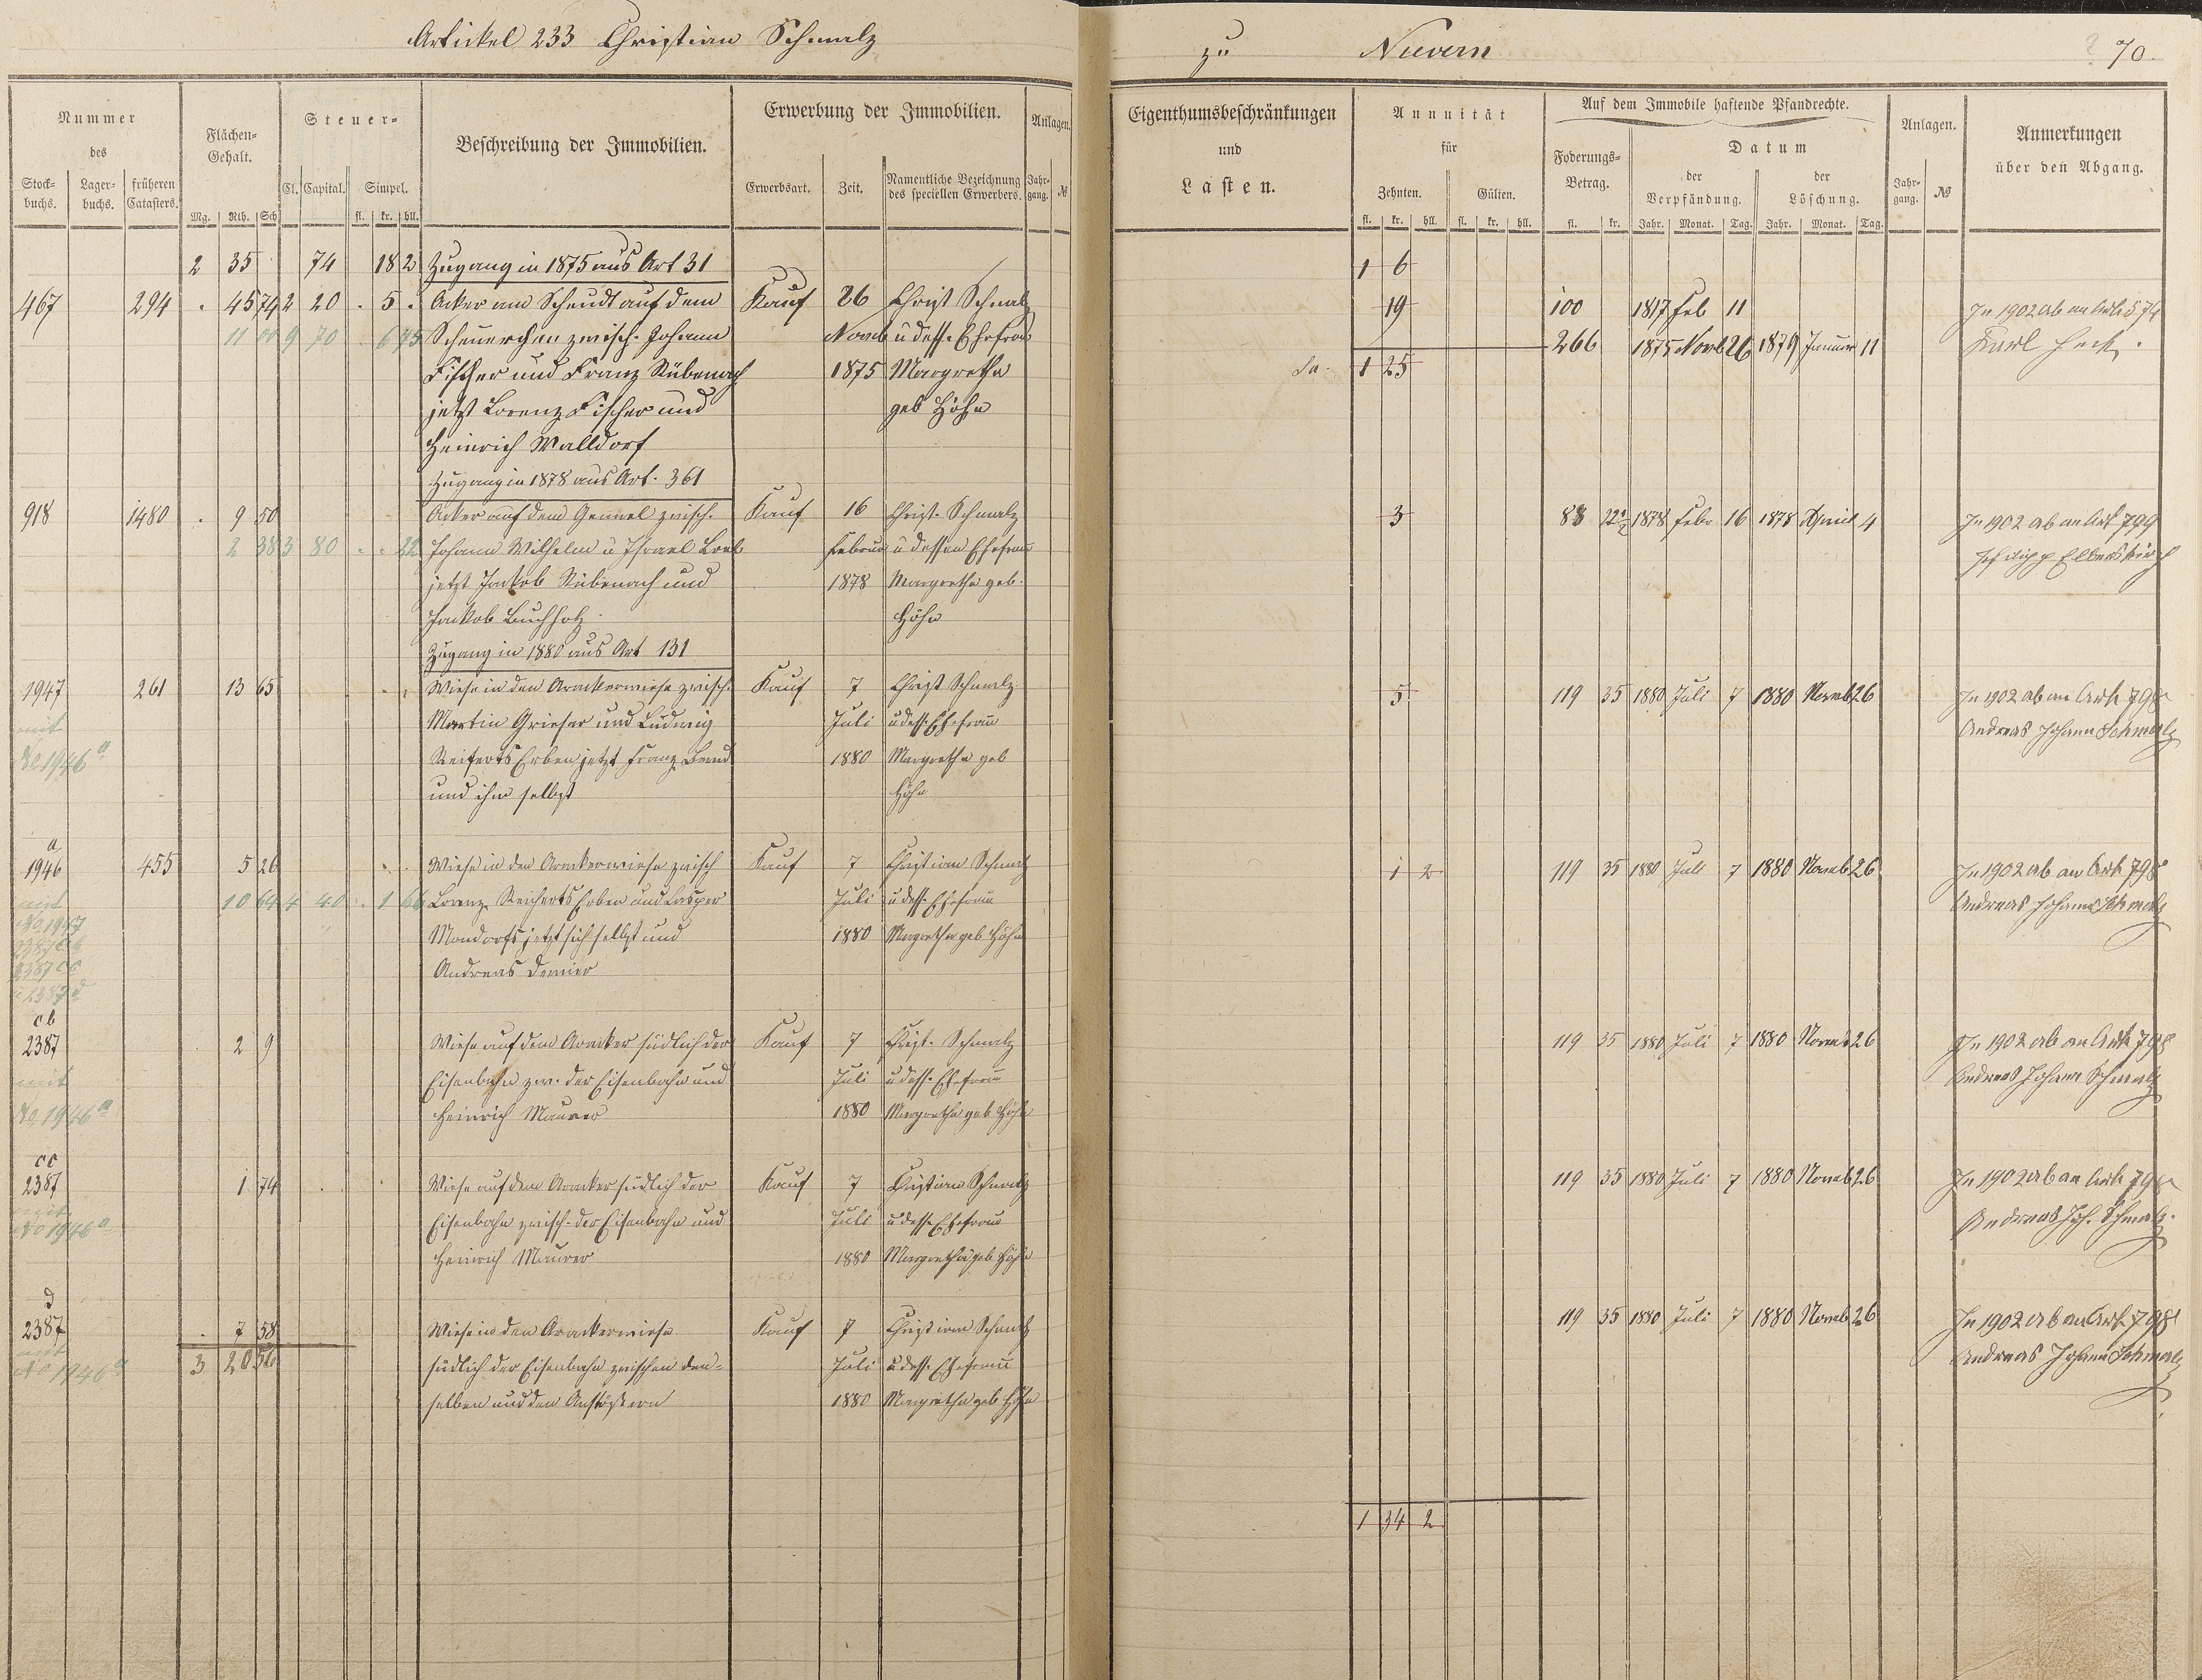 Artickel 233 Christian Schmalz
zu Nievern
70.
Nummer
des
Stock-
buchs.
Lager-
buchs.
früheren
Catasters.
Flächen-
Gehalt.
Mg. Rth. Sch
Steuer-
Cl. Capital. Simpel.
fl. kr. hll.
Beschreibung der Immobilien.
Erwerbung der Immobilien.
Erwerbsart. Zeit.
Namentliche Bezeichnung
des speciellen Erwerbers.
Anlagen.
Jahr-
gang. №
Eigenthumsbeschränkungen
und
Lasten.
Annuität
für
Zehnten. Gülten.
fl. kr. hll. fl. kr. hll.
Auf dem Immobile haftende Pfandrechte.
Foderungs-
Betrag.
fl. kr.
Datum
der
Verpfändung.
der
Löschung.
Jahr. Monat. Tag. Jahr. Monat. Tag.
Anlagen.
Jahr-
gang. №
Anmerkungen
über den Abgang.
2 35 74 18 2 Zugang in 1875 aus Art 31 1 6
467 294 . 45 74 2 20 . 5 . Acker am Scheudt auf dem Kauf 26 Christ Schmalz 19 100 1817 Feb 11 In 1902 ab an
11 00 9 70 6 75 Scheuerchen zwisch. Johann Novmb u dess. Ehefrau 266 1875 Novb 26 1879 Januar 11 Karl Heck.
Fischer und Franz Rübenach 1875 Margretha Sa. 1 25
jetzt Lorenz Fischer und geb Höhn
Heinrich Walldorf
Zugang in 1878 aus Art. 361
918 1480 . 9 50 Acker auf dem Gemel zwisch. Kauf 16 Christ. Schmalz 3 88 22½ 1878 Febr 16 1878 April 4 In 1902 ab an Art 799
2 38 3 80 . . 22 Johann Wilhelm u Israel Löb Februar u dessen Ehefrau
jetzt Jakob Rübenach und 1878 Margretha geb.
Jakob Buchholz. Höhn
Zugang in 1880 aus Art 131
1947 261 13 65 Wiese in den Arackerwiese zwisch. Kauf 7 Christ Schmalz 5 119 35 1880 Juli 7 1880 Novmb 26 In 1902 ab an Art 798
mit Martin Grieser und Ludwig Juli u dess. Ehefrau Andreas Johann Schmalz
No 1946 a Reiferts Erben jetzt Franz Bernd 1880 Margretha geb
und ihm selbst Höhn
a
1946 455 5 26 Wiese in den Arackerwiese zwisch Kauf 7 Christian Schmalz 1 2 119 35 1880 Juli 7 1880 Novmb 26 In 1902 ab an Art 798
mit 10 64 4 40 . 1 66 Lorenz Reicherts Erben und Casper Juli u dess. Ehefrau Andreas Johann Schmalz
No 1947 Mondorfs jetzt sich selbst und 1880 Margretha geb Höhn
2387 cb Andreas Demier
2387 cc
u 2387 d
cb
2387 2 9 Wiese auf dem Aracker südlich der Kauf 7 Christ. Schmalz 119 35 1880 Juli 7 1880 Novmb 26 In 1902 ab an Art 798
mit Eisenbahn zw. der Eisenbahn und Juli u dess. Ehefrau Andreas Johann Schmalz
No 1946 a Heinrich Maurer 1880 Margretha geb Höhn
cc
2387 1 74 Wiese auf dem Aracker südlich der Kauf 7 Christian Schmalz 119 35 1880 Juli 7 1880 Novmb 26 In 1902 ab an Art 798
mit Eisenbahn zwisch. der Eisenbahn und Juli u dess. Ehefrau Andreas Joh. Schmalz.
No 1946 a Heinrich Maurer 1880 Margretha geb Höhn
d
2387 . 7 58 Wiese in den Arackerwiese Kauf 7 Christian Schmalz 119 35 1880 Juli 7 1880 Novmb 26 In 1902 ab an Art. 798
mit 3 20 56 südlich der Eisenbahn zwischen den- Juli u dess. Ehefrau Andreas Johann Schmalz
No 1946 a selben und den Anstößern 1880 Margretha geb Höhn
1 34 2